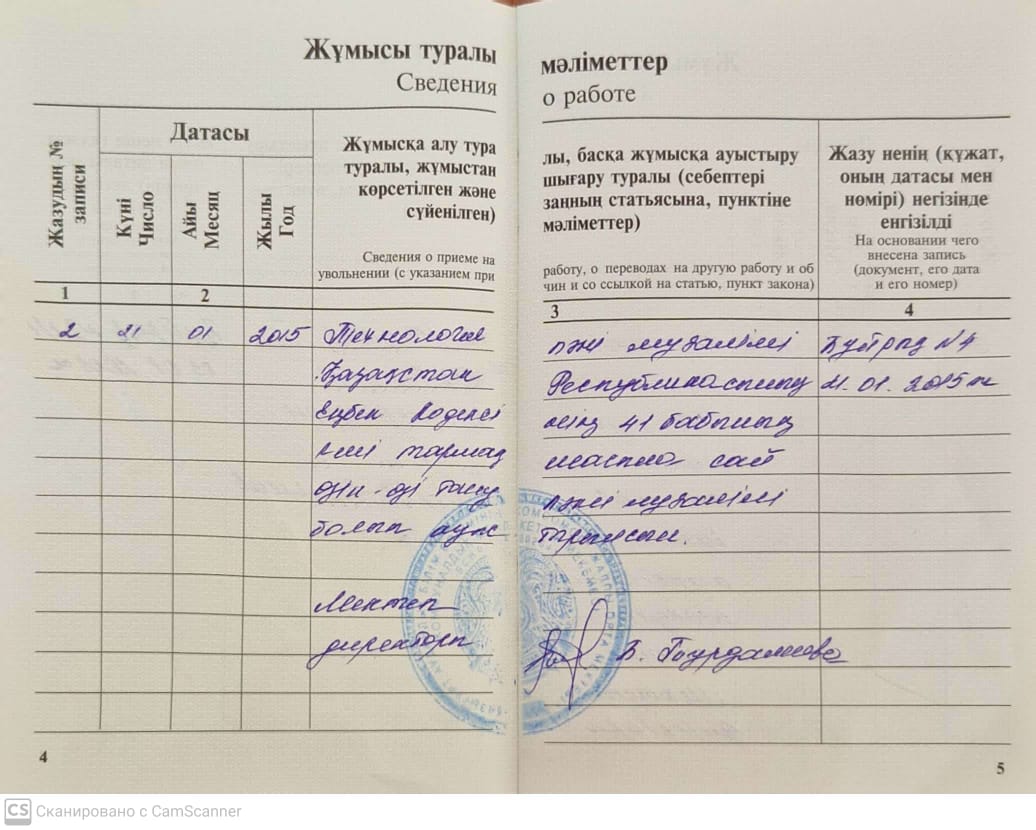 Жұмысы туралы мәліметтер
Сведения о работе
Жазудың №
записи
Датасы
Күні
Число
Айы
Месяц
Жылы
Год
Жұмысқа алу тура
туралы, жұмыстан
көрсетілген және
сүйенілген)
Сведения о приеме на
увольнении (с указанием при
лы, басқа жұмысқа ауыстыру
шығару туралы (себептері
заңның статьясына, пунктіне
мәліметтер)
работу, о переводах на другую работу и об
чин и со ссылкой на статью, пункт закона)
Жазу ненің (құжат,
оның датасы мен
нөмірі) негізінде
енгізілді
На основании чего
внесена запись
(документ, его дата
и его номер)
1 2 3 4
2 21 01 2015 Технология пәні мұғалімі Бұйрық №4
Қазақстан Республикасының 21.01.2015ж
Еңбек Кодексі нің 41 бабының
тармағ сай
өзін-өзі тану пәні мұғалімі
болып ауыс тырылсын.
Мектеп
директоры
4
5
CS Сканировано с CamScanner